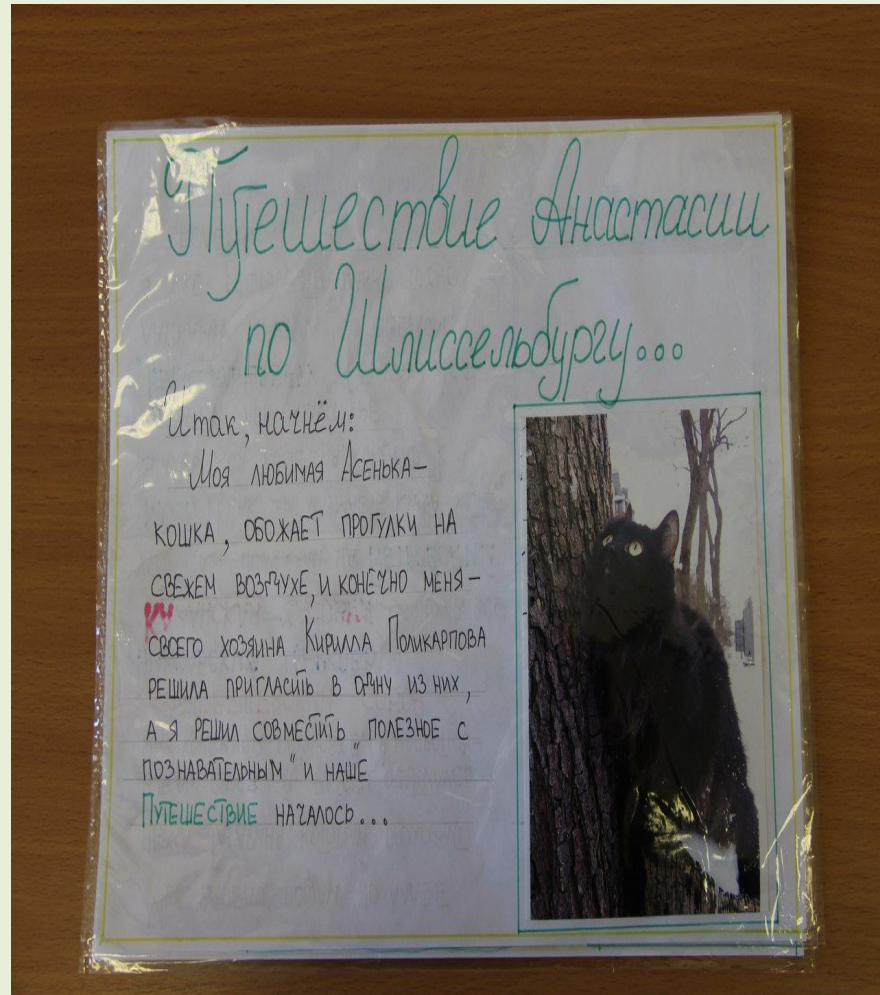 Путешествие Анастасии
по Шлиссельбургу...
Итак, начнём:
Моя любимая Асенька-
кошка, обожает прогулки на
свежем воздухе, и конечно меня-
своего хозяина Кирилла Поликарпова
решила пригласить в одну из них,
а я решил совместить "полезное с
познавательным" и наше
Путешествие началось...